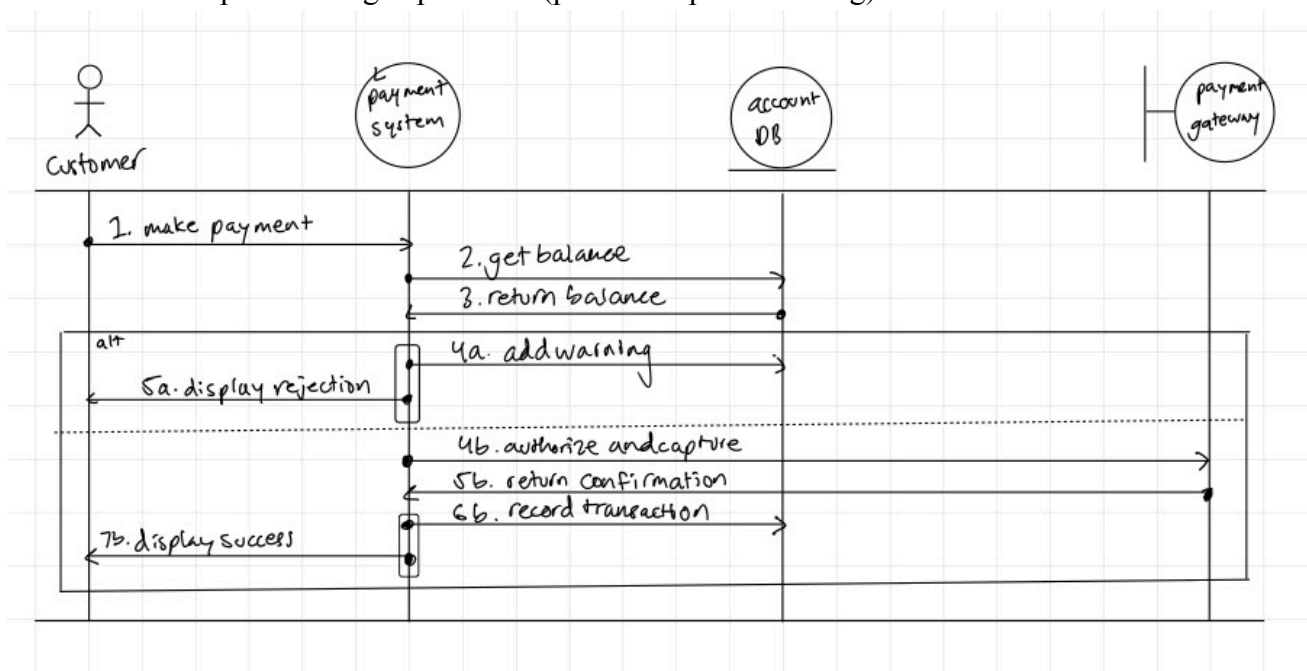 payment
system
account
DB
payment
gateway
Customer
1. make payment
2. get balance
3. return balance
alt
4a. add warning
5a. display rejection
4b. authorize and capture
5b. return confirmation
6b. record transaction
7b. display success